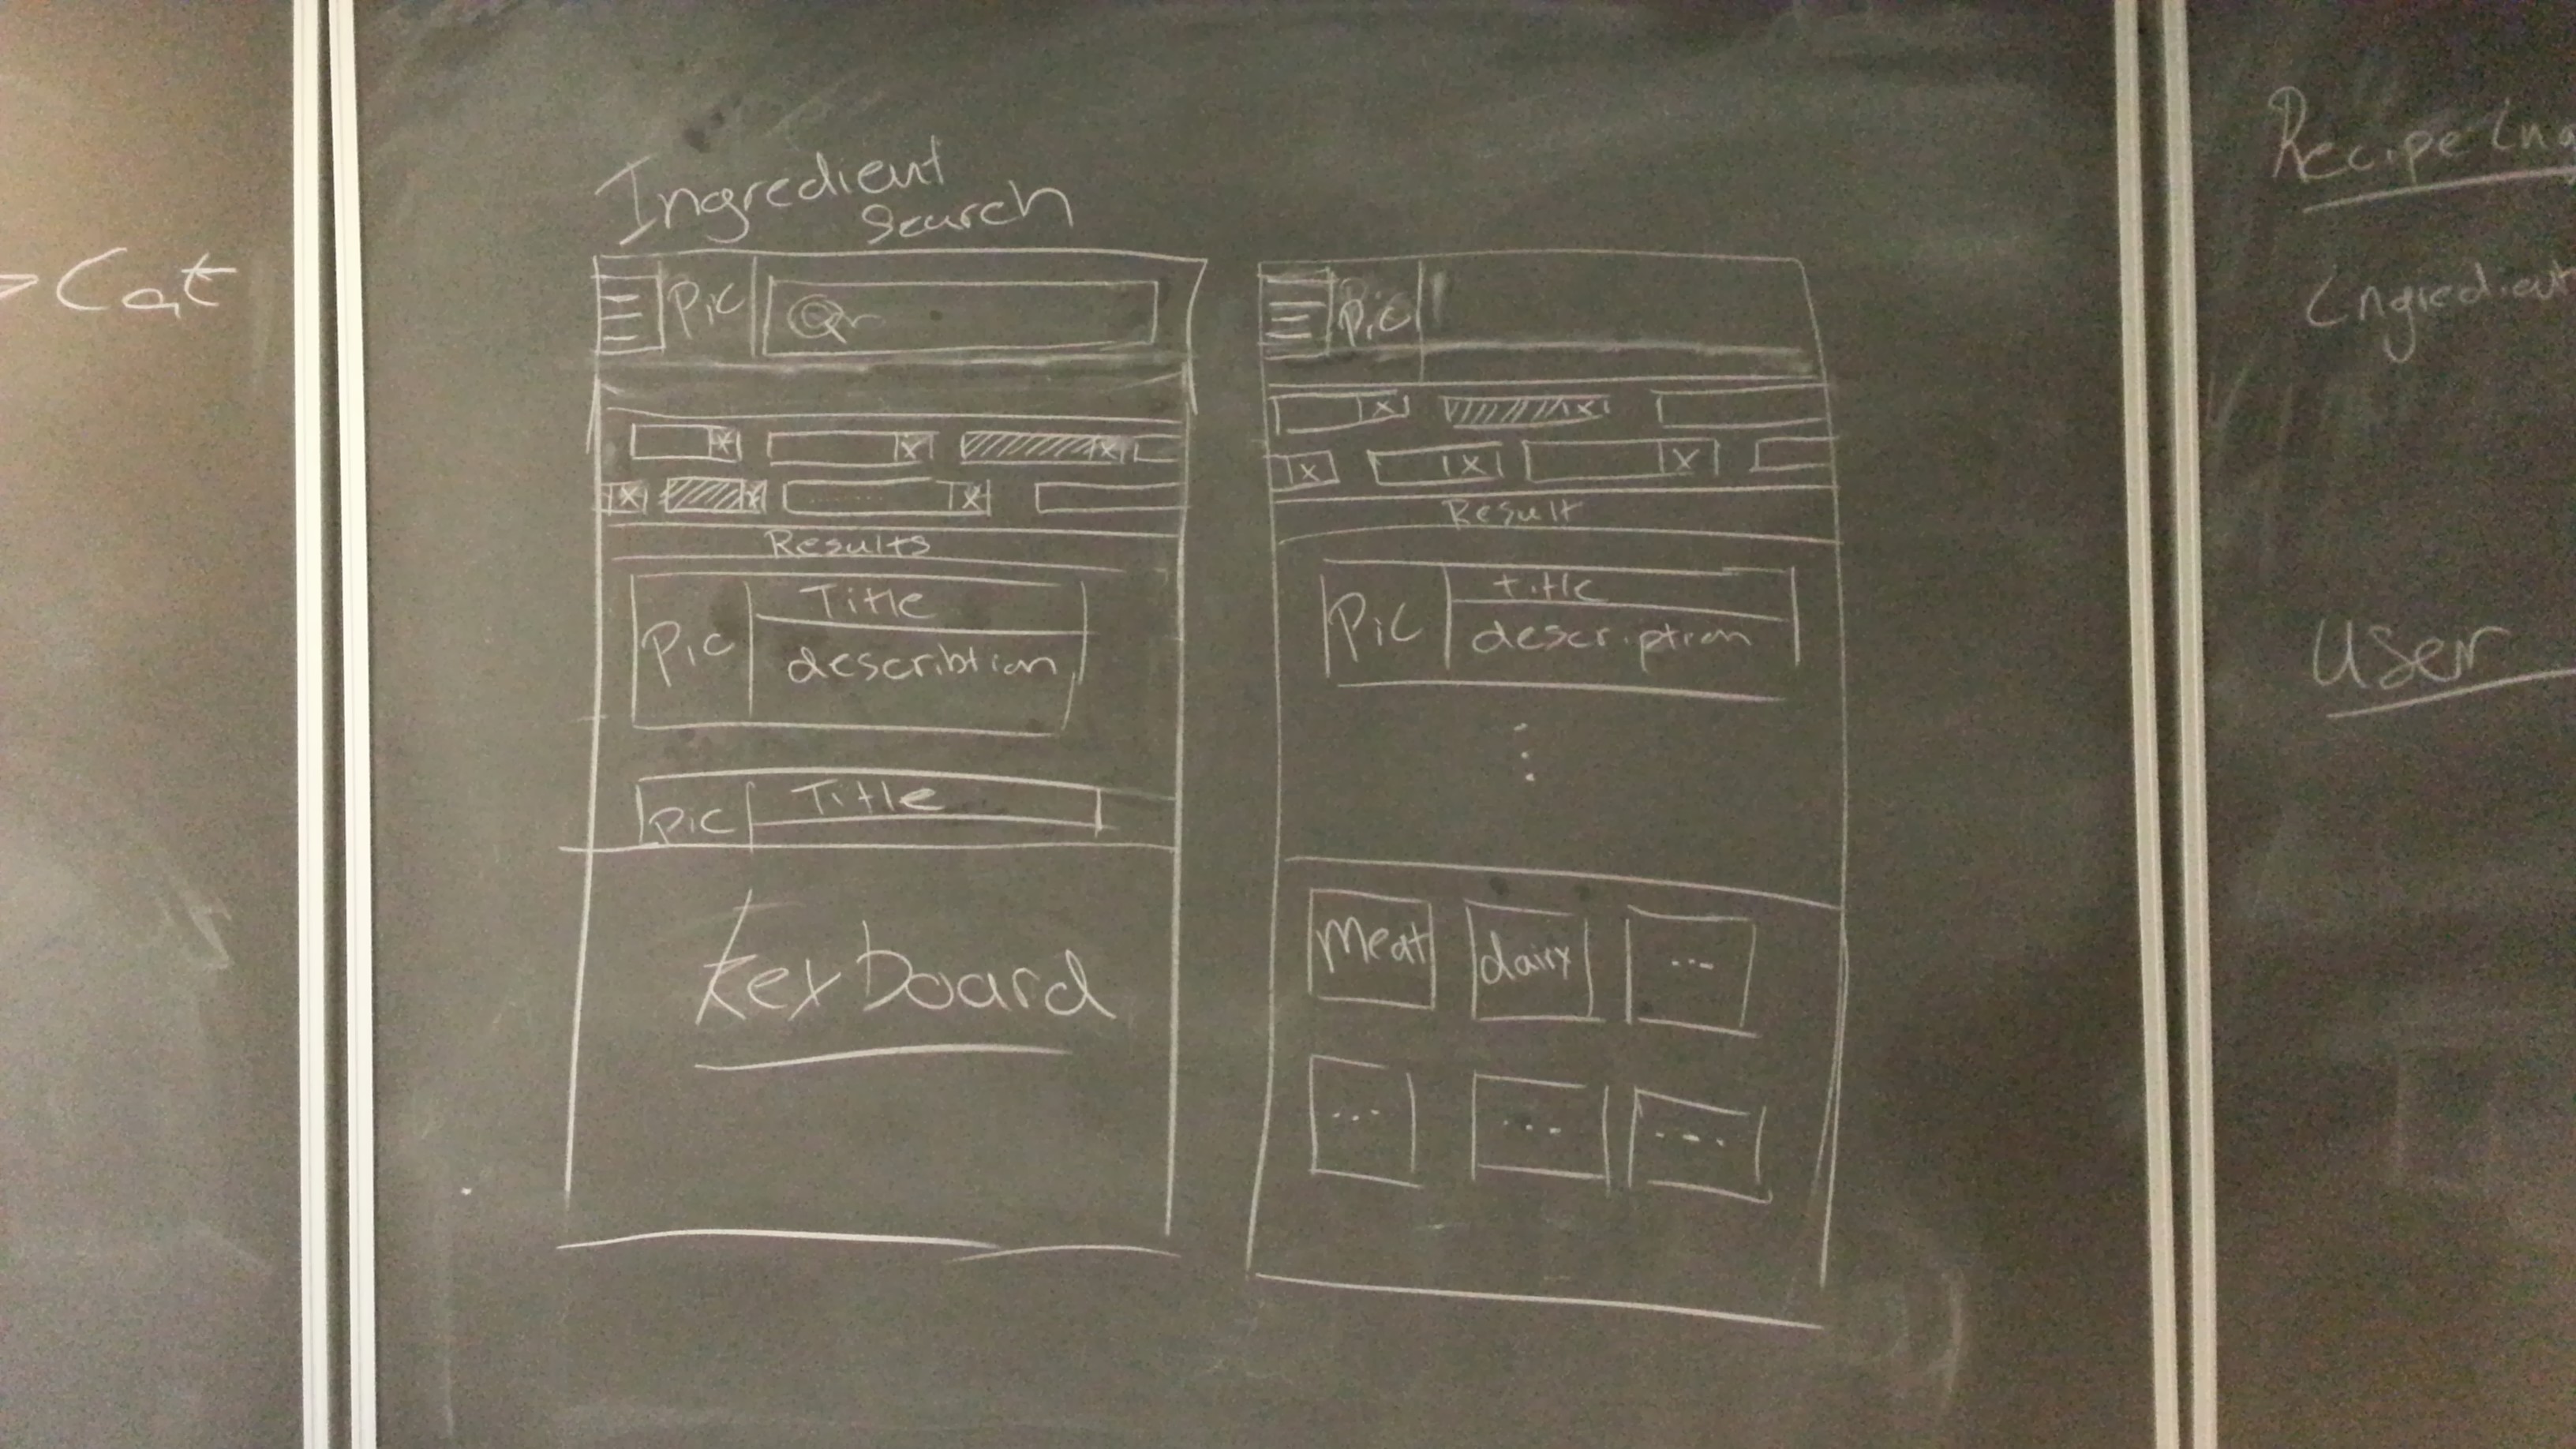 > Cat
Ingredient
search
Pic
Results
Pic
Title
describtion
pic
Title
keyboard
Pic
x
x
x
x
x
x
Result
Pic
title
description
Meat
dairy
...
...
...
...
x
x
x
x
x
Recipe Ing
Ingredient
User